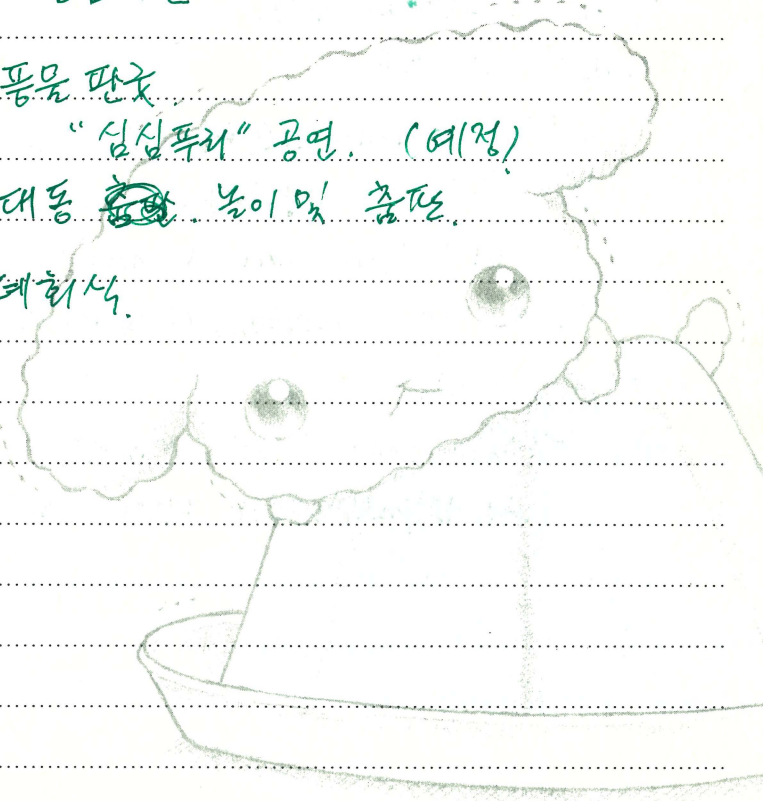 풍물 판굿.
"심심푸리" 공연. (예정)
대동 놀이 및 춤판.
폐회식.